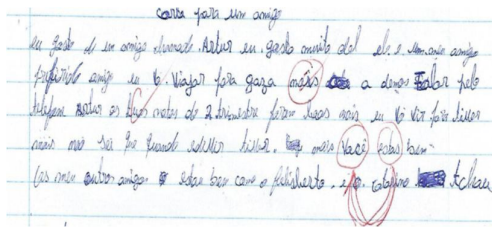 carta para um amigo
eu gosto de um amigo chamado Artur eu gosto muito del ele e meu amigo
preferido amigo eu vo viajar para gaza mais a demos falar pelo
telefone Artur as tuas notas de 2 trimestre foram boas mais eu vo vir para
mais no sei que quando mais você estas bem
os meu outros amigos estao bem como o felisberto e o catarino tchau